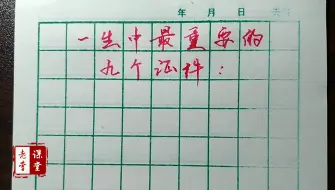 年 月 日
一生中最重要的
九个证件：
老李
课堂